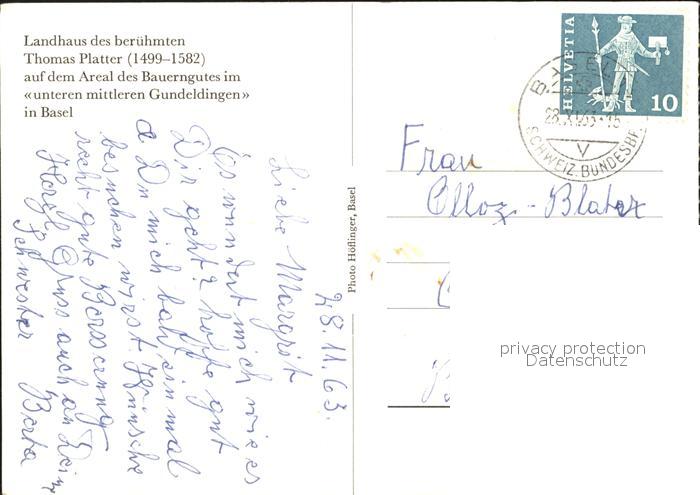 Landhaus des berühmten
Thomas Platter (1499–1582)
auf dem Areal des Bauerngutes im
«unteren mittleren Gundeldingen»
in Basel
28.11.63.
Liebe Margrit
Es wundert mich wie es
Dir geht? hoffe gut
& Du mich bald einmal
besuchen wirst. Wünsche
recht gute Besserung
Herzl. Gruss auch an Dein
Schwester Berta
Photo Höflinger, Basel
HELVETIA
10
BASEL
28.XI.63-15
V
SCHWEIZ. BUNDESB
Frau
Olloz-Blatter
privacy protection
Datenschutz